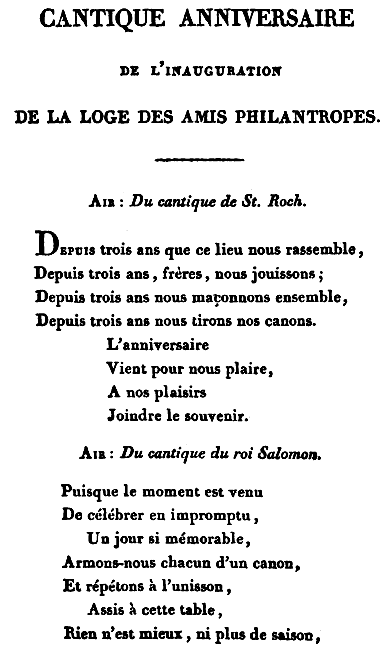 CANTIQUE ANNIVERSAIRE
DE L'INAUGURATION
DE LA LOGE DES AMIS PHILANTROPES.
AIR : Du cantique de St. Roch.
DEPUIS trois ans que ce lieu nous rassemble,
Depuis trois ans, frères, nous jouissons ;
Depuis trois ans nous maçonnons ensemble,
Depuis trois ans nous tirons nos canons.
L'anniversaire
Vient pour nous plaire,
A nos plaisirs
Joindre le souvenir.
AIR : Du cantique du roi Salomon.
Puisque le moment est venu
De célébrer en impromptu,
Un jour si mémorable,
Armons-nous chacun d'un canon,
Et répétons à l'unisson,
Assis à cette table,
Rien n'est mieux, ni plus de saison,